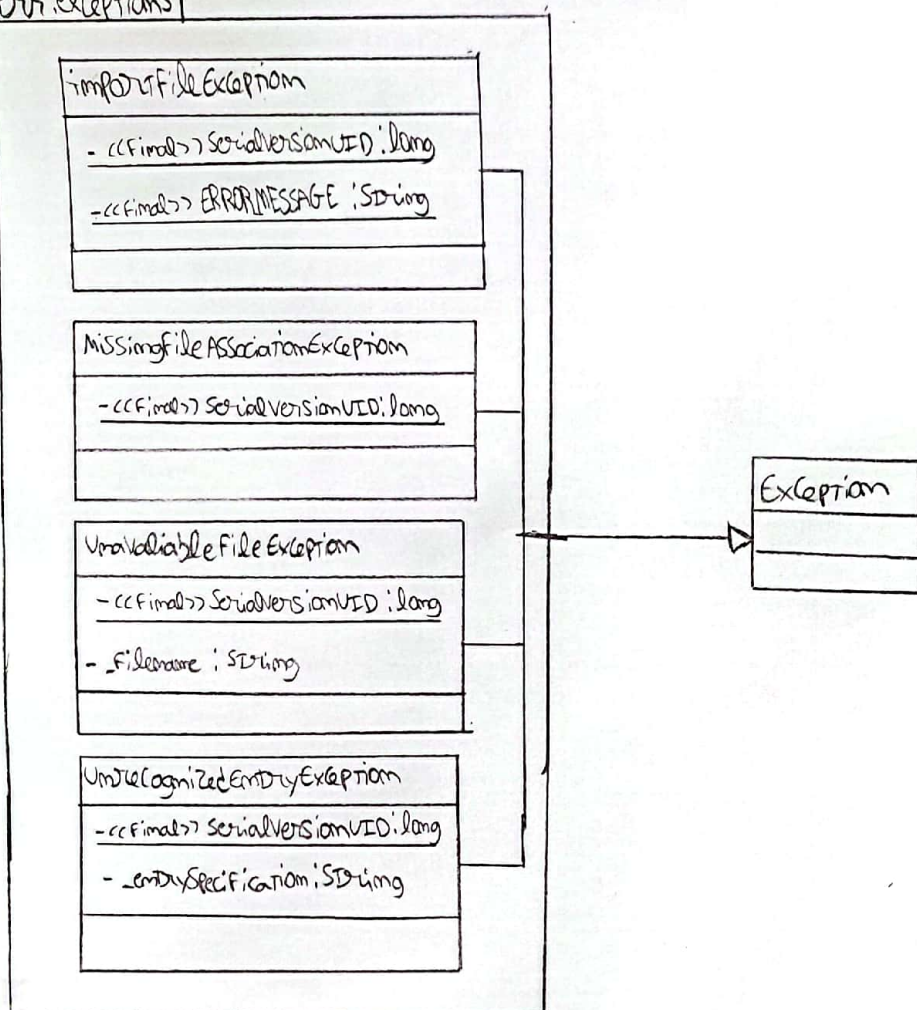 .exceptions
importFileException
- <<final>> serialVersionUID : long
- <<final>> ERRORMESSAGE : String
MissingFileAssociationException
- <<final>> serialVersionUID : long
UnavaliableFileException
- <<final>> serialVersionUID : long
- _filename : String
UnrecognizedEntryException
- <<final>> serialVersionUID : long
- _entrySpecification : String
Exception